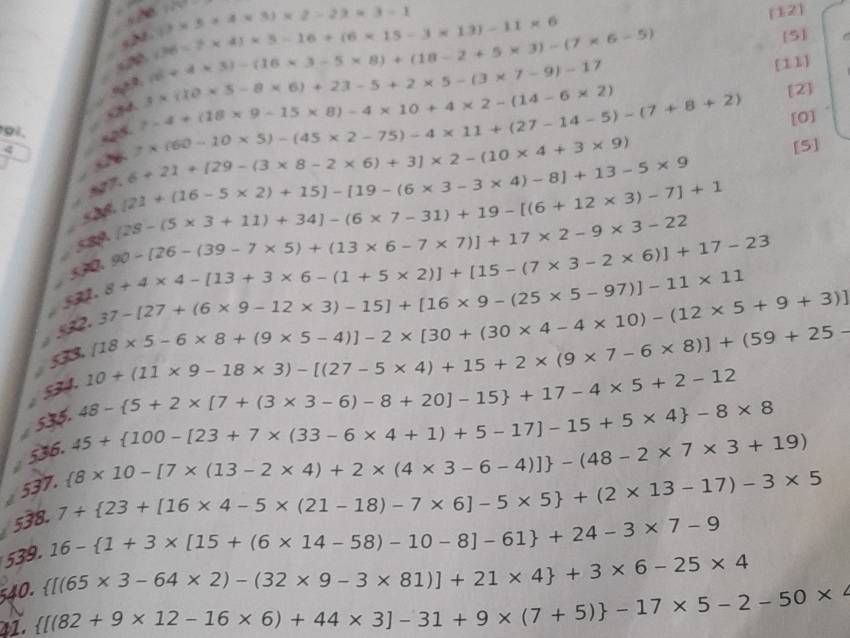 × 5 + 4 × 3) × 2 - 23 × 3 - 1
- 7 × 4) × 5 - 16 + (6 × 15 - 3 × 13) - 11 × 6
[12]
+ 4 × 5) - (16 × 3 - 5 × 8) + (18 - 2 + 5 × 3) - (7 × 6 - 5)
[5]
3 × (10 × 5 - 8 × 6) + 23 - 5 + 2 × 5 - (3 × 7 - 9) - 17
[11]
7 - 4 + (18 × 9 - 15 × 8) - 4 × 10 + 4 × 2 - (14 - 6 × 2)
[2]
526. 7 × (60 - 10 × 5) - (45 × 2 - 75) - 4 × 11 + (27 - 14 - 5) - (7 + 8 + 2)
[0]
527. 6 + 21 + [29 - (3 × 8 - 2 × 6) + 3] × 2 - (10 × 4 + 3 × 9)
[5]
528. [21 + (16 - 5 × 2) + 15] - [19 - (6 × 3 - 3 × 4) - 8] + 13 - 5 × 9
529. [28 - (5 × 3 + 11) + 34] - (6 × 7 - 31) + 19 - [(6 + 12 × 3) - 7] + 1
530. 90 - [26 - (39 - 7 × 5) + (13 × 6 - 7 × 7)] + 17 × 2 - 9 × 3 - 22
531. 8 + 4 × 4 - [13 + 3 × 6 - (1 + 5 × 2)] + [15 - (7 × 3 - 2 × 6)] + 17 - 23
532. 37 - [27 + (6 × 9 - 12 × 3) - 15] + [16 × 9 - (25 × 5 - 97)] - 11 × 11
533. [18 × 5 - 6 × 8 + (9 × 5 - 4)] - 2 × [30 + (30 × 4 - 4 × 10) - (12 × 5 + 9 + 3)]
534. 10 + (11 × 9 - 18 × 3) - [(27 - 5 × 4) + 15 + 2 × (9 × 7 - 6 × 8)] + (59 + 25 -
535. 48 - {5 + 2 × [7 + (3 × 3 - 6) - 8 + 20] - 15} + 17 - 4 × 5 + 2 - 12
536. 45 + {100 - [23 + 7 × (33 - 6 × 4 + 1) + 5 - 17] - 15 + 5 × 4} - 8 × 8
537. {8 × 10 - [7 × (13 - 2 × 4) + 2 × (4 × 3 - 6 - 4)]} - (48 - 2 × 7 × 3 + 19)
538. 7 + {23 + [16 × 4 - 5 × (21 - 18) - 7 × 6] - 5 × 5} + (2 × 13 - 17) - 3 × 5
539. 16 - {1 + 3 × [15 + (6 × 14 - 58) - 10 - 8] - 61} + 24 - 3 × 7 - 9
540. {[(65 × 3 - 64 × 2) - (32 × 9 - 3 × 81)] + 21 × 4} + 3 × 6 - 25 × 4
41. {[(82 + 9 × 12 - 16 × 6) + 44 × 3] - 31 + 9 × (7 + 5)} - 17 × 5 - 2 - 50 ×